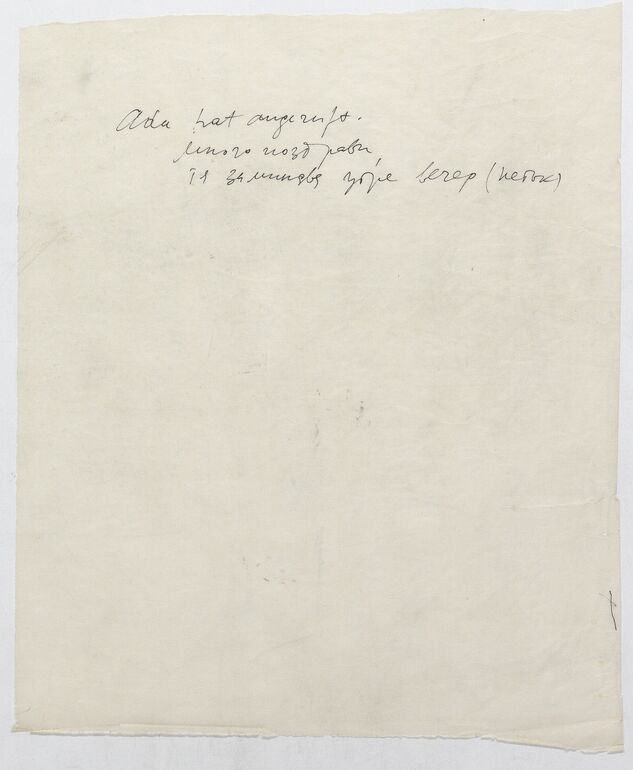 Ada hat angeruft.
много поздрави,
тя заминава утре вечер (петък)